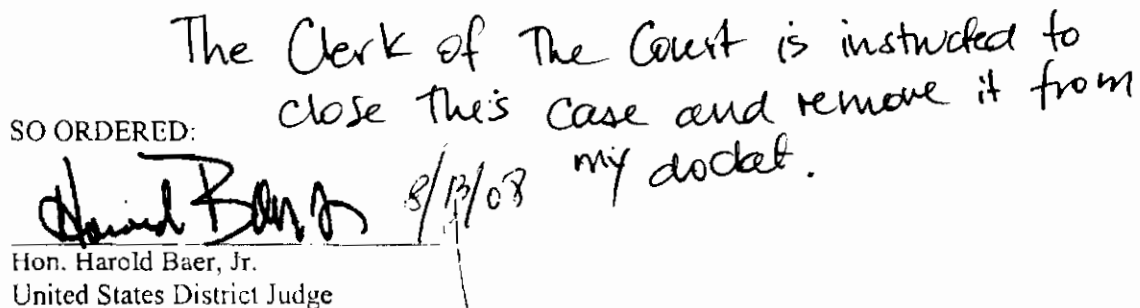 The Clerk of The Court is instructed to
close this case and remove it from
my docket.
SO ORDERED:
Harold Baer Jr 8/13/08
Hon. Harold Baer, Jr.
United States District Judge